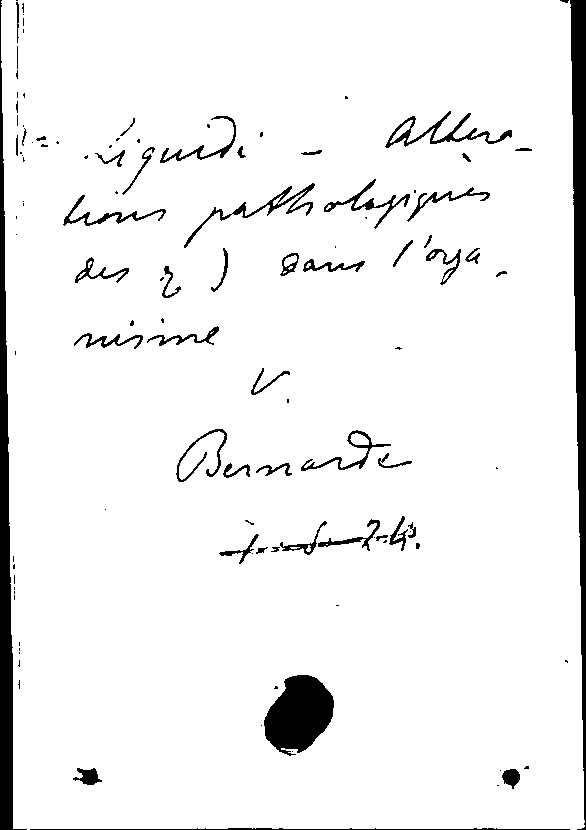 Liquidi - Altéra-
tions pathologiques
des ) dans l'orga-
nisme
V.
Bernarde
24.